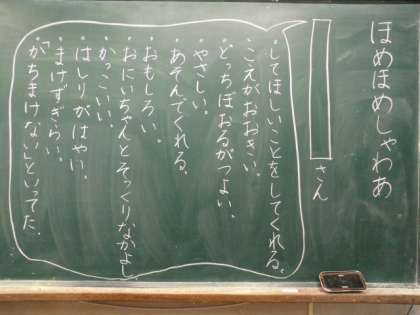 ほめほめしゃわあ
さん
・してほしいことをしてくれる。
・こえがおおきい。
・どっちぼおるがつよい。
・やさしい。
・あそんでくれる。
・おもしろい。
・おにいちゃんとそっくりなかよし
・かっこいい。
・はしりがはやい。
・まけずぎらい。
・「がちまけない」といってた。